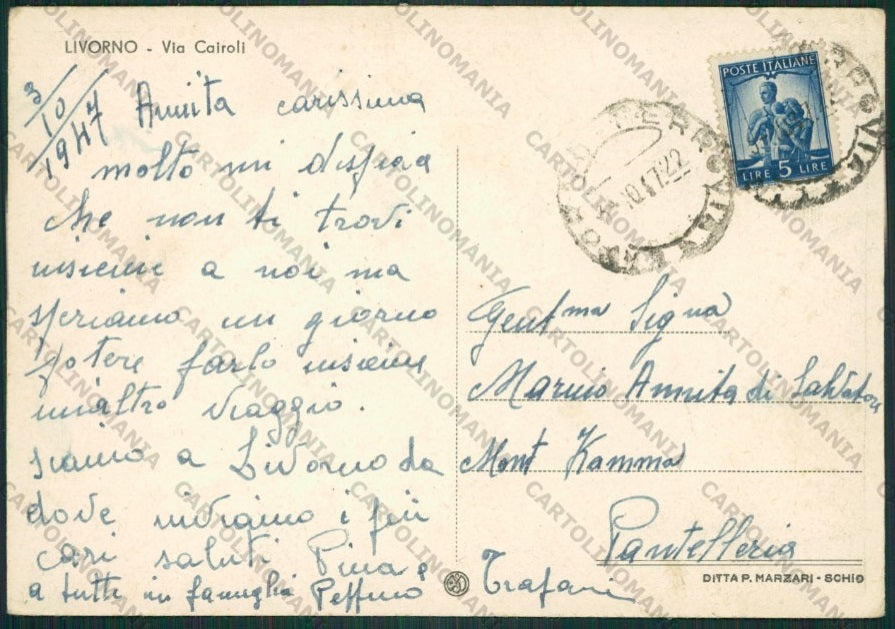 LIVORNO - Via Cairoli
3/10/1947
Annita carissima
molto mi dispiace
che non ti trovi
insieme a noi ma
speriamo un giorno
potere farlo insieme
un'altro viaggio.
siamo a Livorno da
dove inviamo i più
cari saluti Pina e
a tutti in famiglia Peppino
POSTE ITALIANE
LIRE 5 LIRE
Gent.ma Sig.na
Annita di Salvatore
Mont Kamma
Pantelleria
Trapani
DITTA P. MARZARI - SCHIO
CARTOLINOMANIA